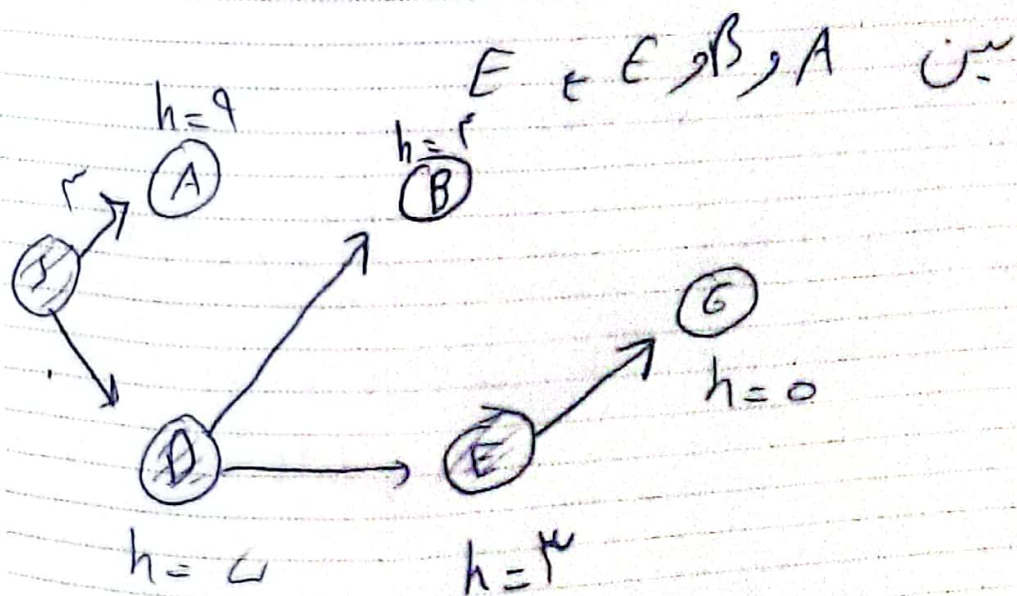 بین A و B و E ، E
h=9
A
h=۴
B
S
G
h=0
D
E
h=۵
h=۳